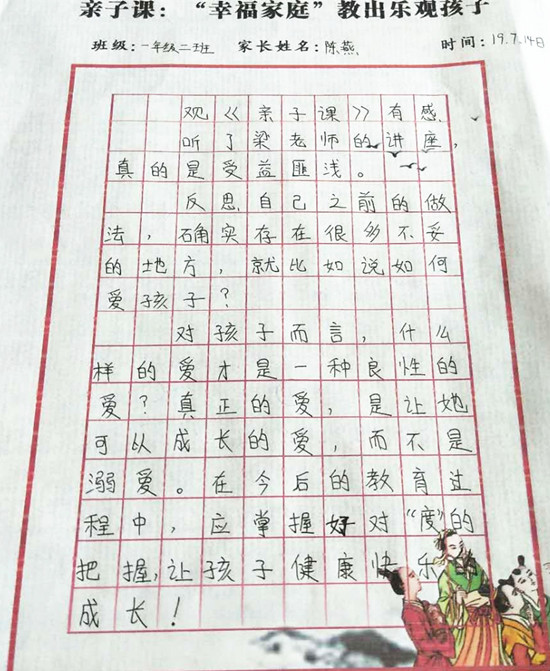 亲子课：“幸福家庭”教出乐观孩子
班级：一年级二班 家长姓名：陈燕 时间：19.7.14日
观《亲子课》有感
听了梁老师的讲座，
真的是受益匪浅。
反思自己之前的做
法，确实存在很多不妥
的地方，就比如说如何
爱孩子？
对孩子而言，什么
样的爱才是一种良性的
爱？真正的爱，是让她
可以成长的爱，而不是
溺爱。在今后的教育过
程中，应掌握好对“度”的
把握，让孩子健康快乐
成长！